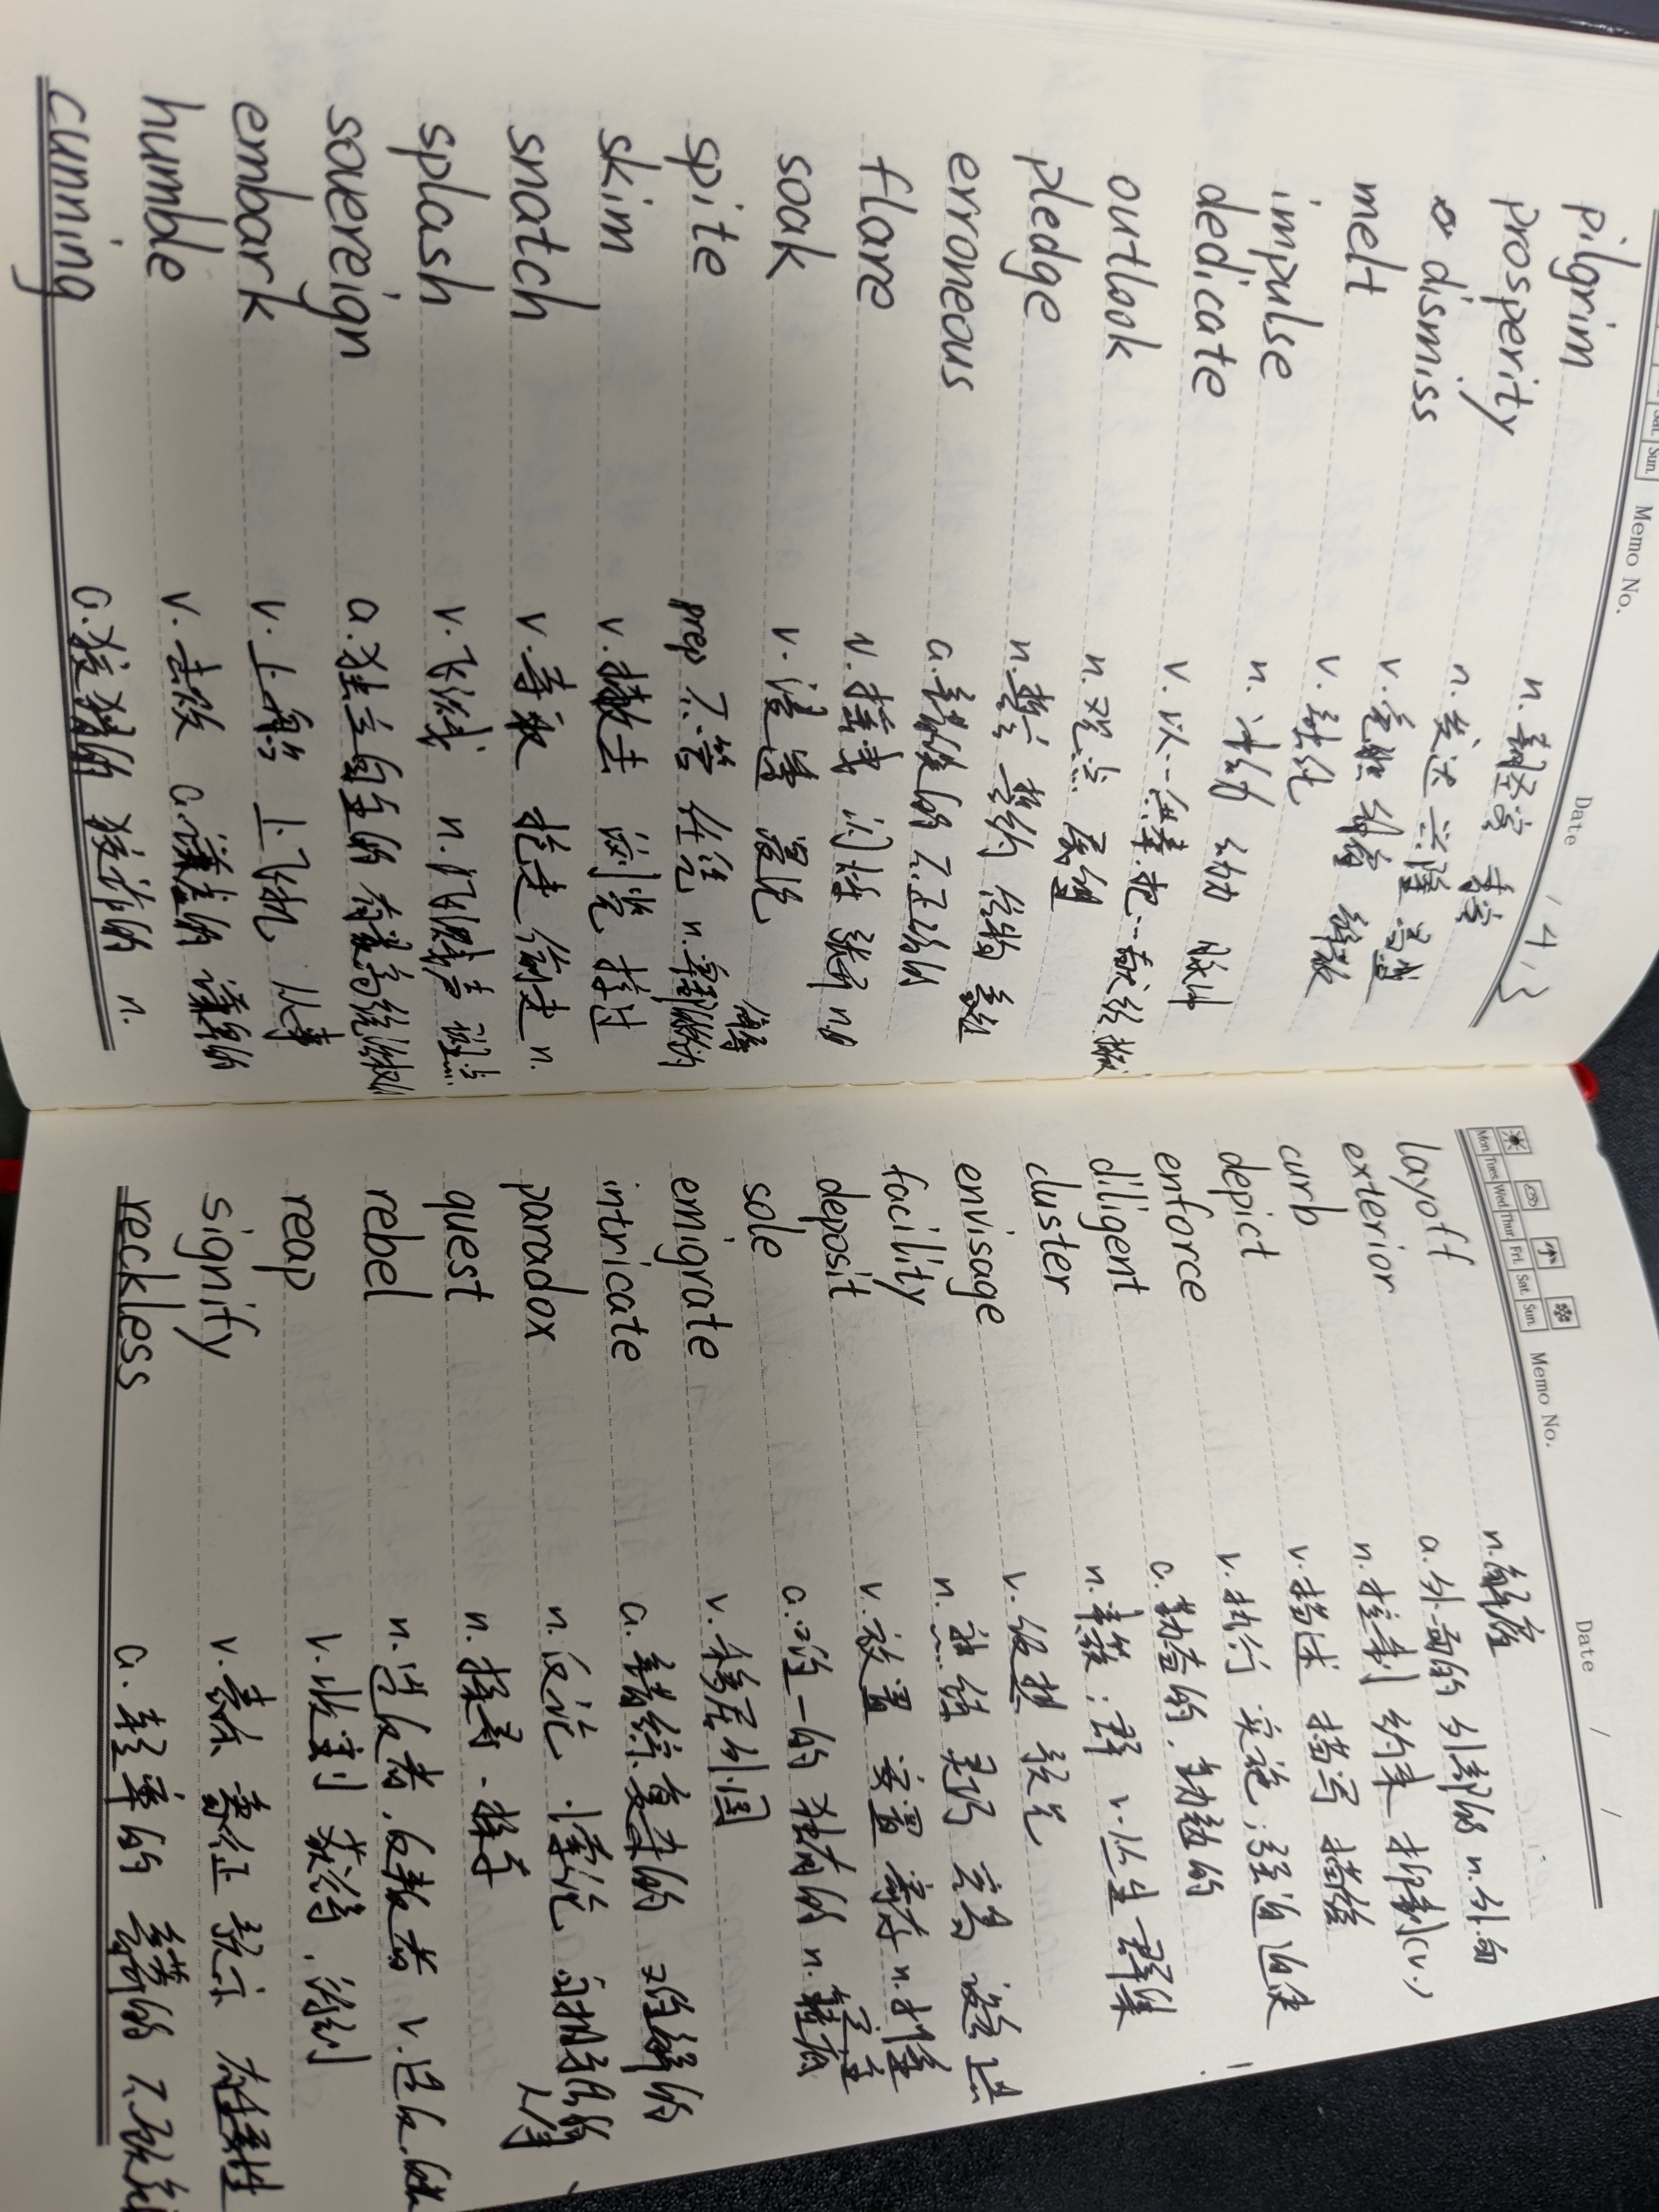 Sat. Sun. Memo No. Date / 4 . 3
pilgrim n. 朝圣者
prosperity n. 发达 兴隆
dismiss v. 免职 解雇
melt v. 融化
impulse n. 冲动
dedicate v. 以…供奉.把…献给
outlook n. 观点 展望
pledge n. 誓言 誓约 信物
erroneous a. 错误的 不正确的
flare v. 闪耀 n.
soak v. 浸透
spite prep 不管 任凭 n.
skim v. 撇去 浏览 掠过
snatch v. 夺取 抢走 偷走 n.
splash v. 飞溅 n. 飞溅声 斑点
sovereign a. 独立自主的 有最高统治权的
embark v. 上船 上飞机 从事
humble v. 击败 a. 谦恭的 谦卑的
cunning a. 狡猾的 狡诈的 n.
Mon. Tues. Wed. Thur. Fri. Sat. Sun. Memo No. Date / /
layoff n. 解雇
exterior a. 外面的 外部的 n. 外面
curb n. 控制 约束 抑制(v.)
depict v. 描述 描写 描绘
enforce v. 执行 实施；强迫 迫使
diligent a. 勤奋的.勤勉的
cluster n. 串簇；群 v. 丛生 群集
envisage v. 设想 预见
facility n. 灵巧
deposit v. 放置 安置 寄存 n.
sole a. 唯一的 独有的 n. 鞋底
emigrate v. 移居外国
intricate a. 错综复杂的 难解的
paradox n. 反论 悖论 自相矛盾的人
quest n. 探寻 . 搜寻
rebel n. 造反者.反叛者 v.
reap v. 收割 获得 . 得到
signify v. 表示 象征 预示 有重要性
reckless a. 轻率的 鲁莽的